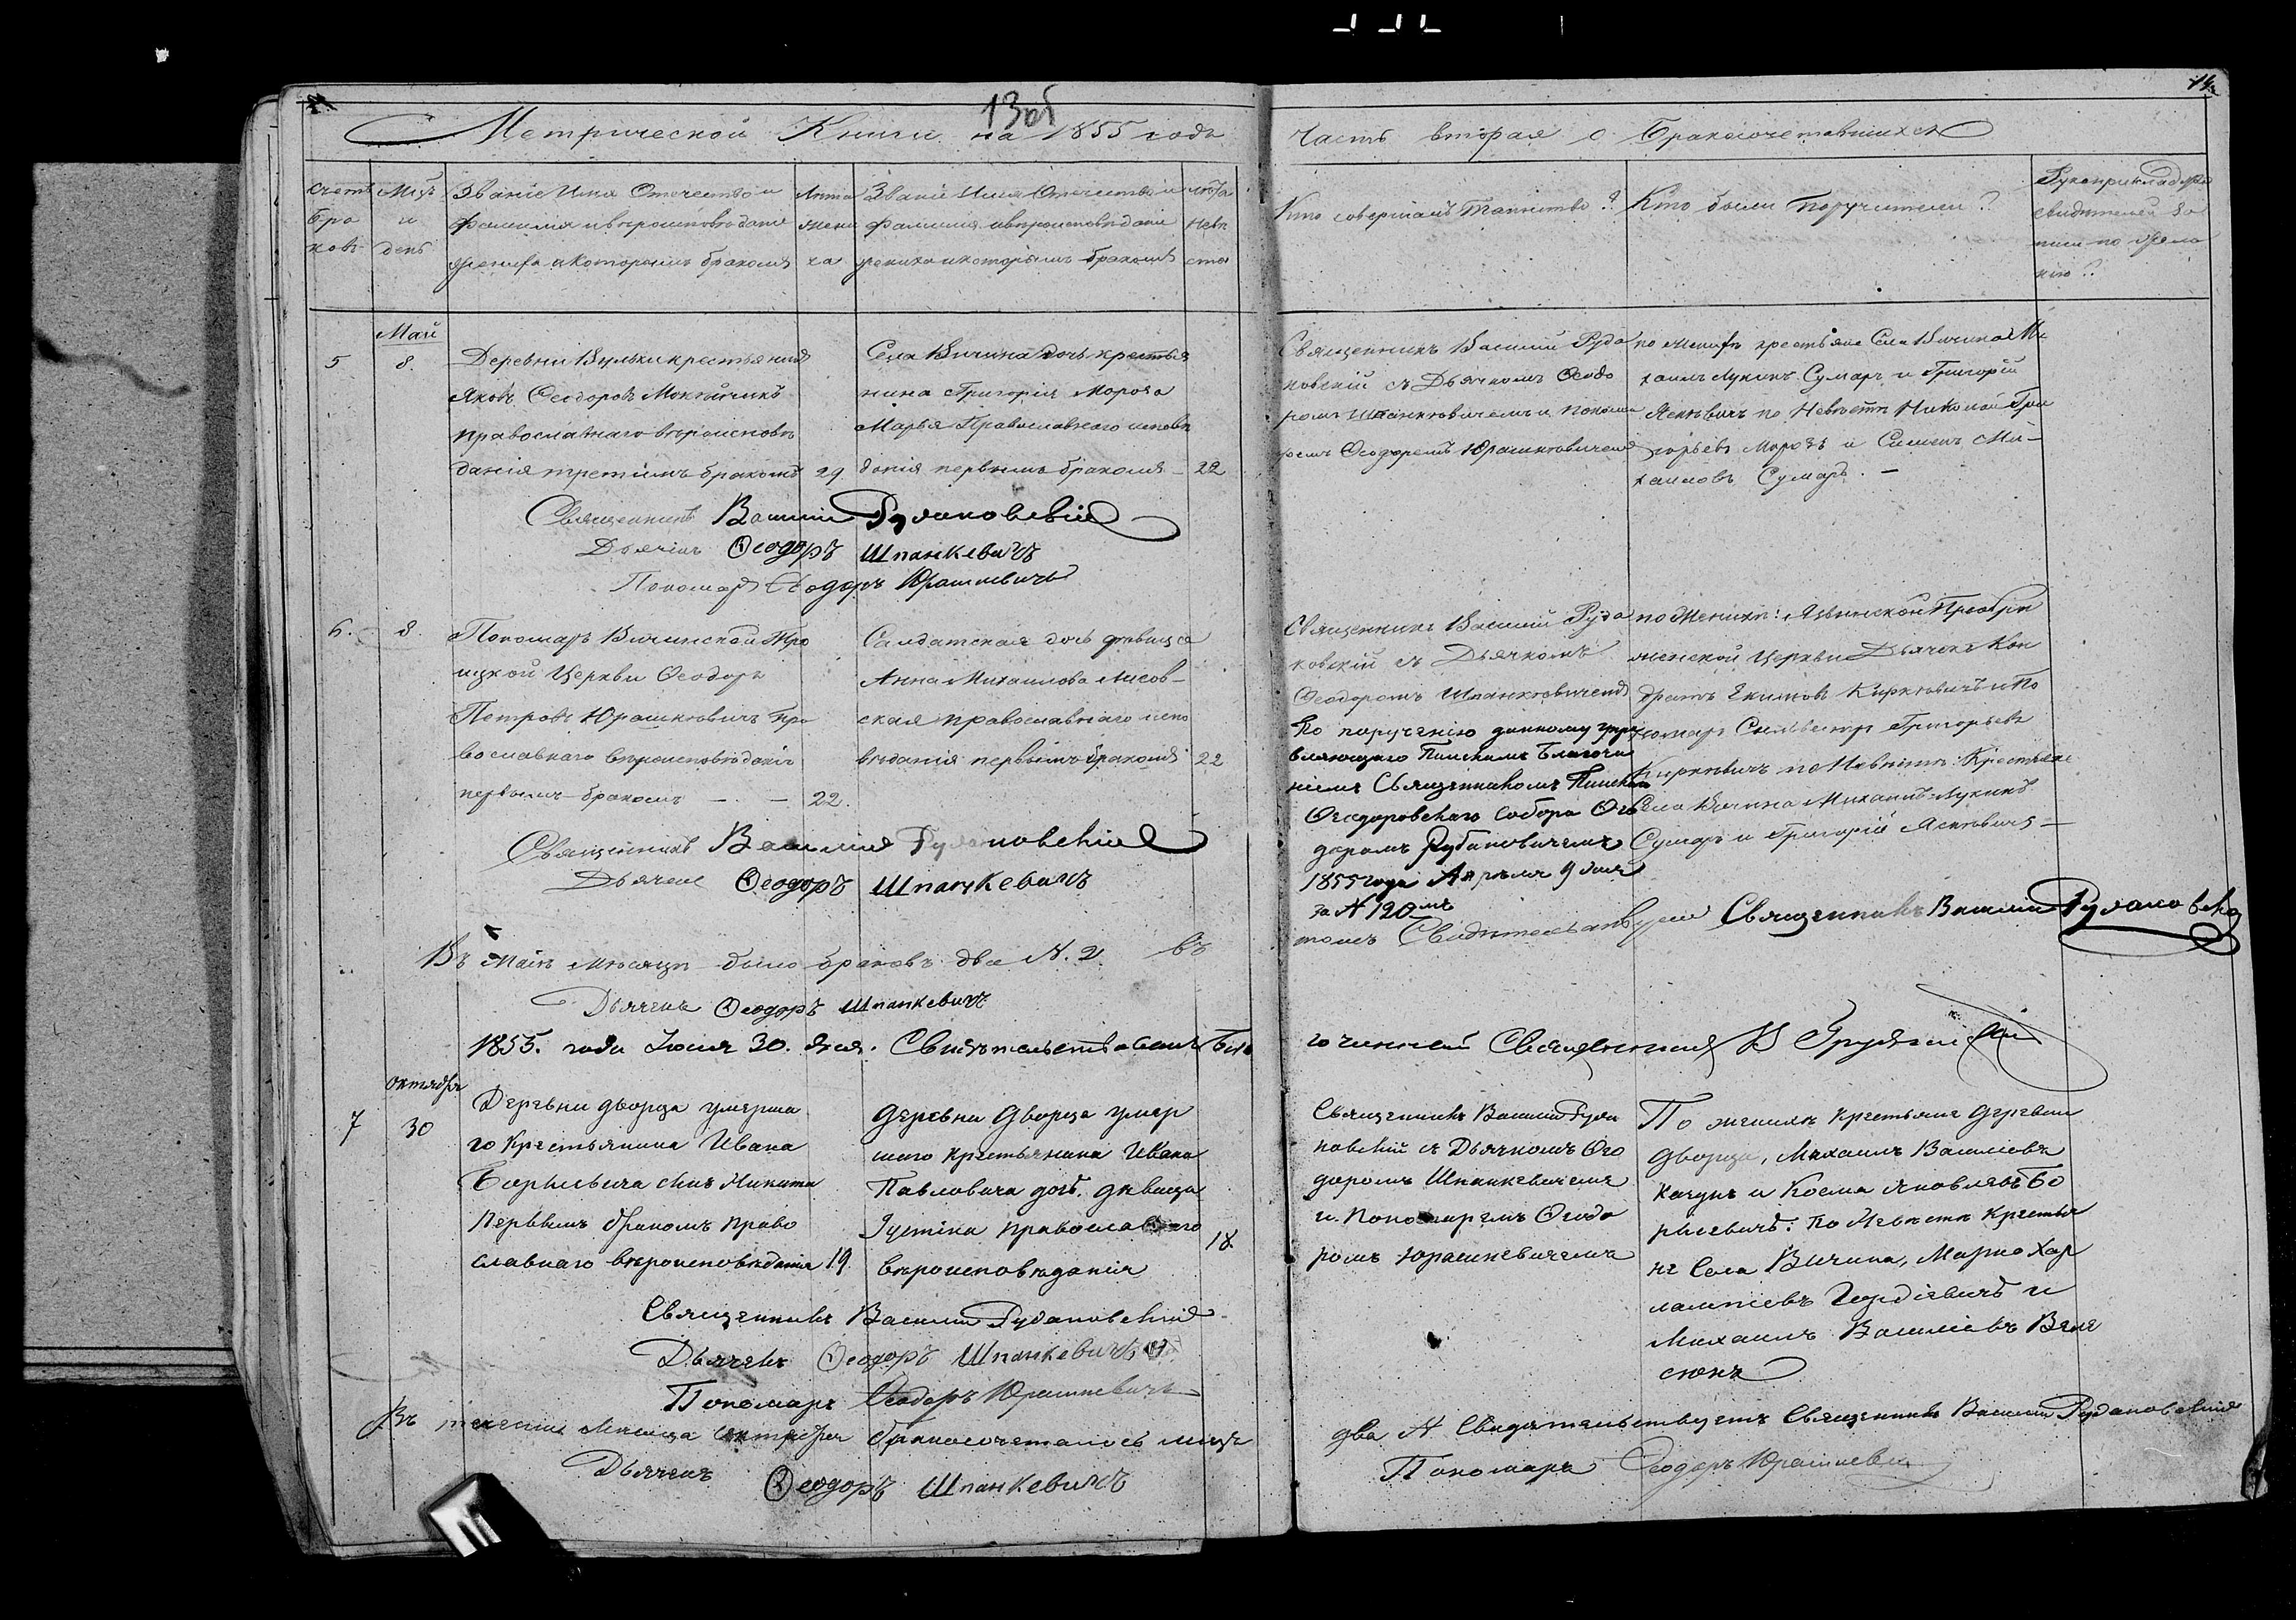 13об
14
Метрической Книги на 1855 годъ
Часть вторая о Бракосочетавшихся
Счетъ браковъ
Мцъ и день
Званіе Имя Отечество и
фамилія и вероисповеданіе
жениха и которымъ бракомъ
Лѣта жениха
Званіе Имя Отечество и
фамилія и вероисповеданіе
невѣста
Кто совершалъ Таинство?
Кто были Поручители?
свидетелей за
писи по жела
нію?
Май
5
8.
Деревни Вульки крестьянинъ
Яковъ Ѳеодоровъ
православнаго вероисповѣ
данія третіимъ бракомъ
29.
Села Вичина дочь крестья
нина Григорія Мороза
Марья Православнаго исповѣ
данія первымъ бракомъ
22
Священникъ Василій Руда
ковскій съ Дьячкомъ Ѳеодо
ромъ Шпанкевичемъ и понома
ремъ Ѳеодоромъ Юрашкевичемъ
по Женихѣ крестьяне Села Вичина Ми
хаилъ Лукинъ Сумаръ и Григорій
Яскевичъ по Невѣстѣ Николай Гри
горьевъ Морозъ и Симеонъ Ми-
хаиловъ Сумаръ. —
Священникъ Василій Рудаковскій
Дьячекъ Ѳеодоръ Шпанкевичъ
Пономаръ Ѳеодоръ Юрашкевичъ
6.
8.
Пономаръ Вичинской Тро
ицкой Церкви Ѳеодоръ
Петровъ Юрашкевичъ Пра
вославнаго вероисповѣданія
первымъ бракомъ — —
22.
Салдатская дочь дѣвица
Анна Михаилова Лисов-
ская православнаго испо
вѣданія первымъ бракомъ
22
Священникъ Василій Руда
ковскій съ Дьячкомъ
Ѳеодоромъ Шпанкевичемъ
По порученію данному упра
вляющаго Пинскимъ Благочи
ніемъ Священникомъ Пинскаго
Ѳеодоровскаго Собора Ѳео
доромъ Рубановичемъ
1855 года Апреля 9 дня
за № 190мъ
по Женихѣ: Преобра
женской Церкви Дьячекъ Кон
дратъ Екимовъ Киркевичъ и По
номарь Сильвестръ Григорьевъ
Киркевичъ по Невѣстѣ: Крестьяне
Села Вичина Михаилъ Лукинъ
Сумаръ и Григорій Яскевичъ —
Священникъ Василій Рудаковскій
Дьячекъ Ѳеодоръ Шпанкевичъ
Въ Маѣ мѣсяцѣ было браковъ два № 2 въ
томъ Свидѣтельствуемъ Священникъ Василій Рудаковскій
Дьячекъ Ѳеодоръ Шпанкевичъ
1855. года Іюля 30. дня. Свидѣтельствовалъ Бла
гочинный Священникъ В
октября
7
30
Деревни дворца умерша
го Крестьянина Ивана
Борисевича сынъ Никита
Первымъ бракомъ право
славнаго вѣроисповѣданія
19.
деревни Дворца умер
шаго крестьянина Ивана
Павловича дочь дѣвица
Іустина православнаго
вѣроисповѣданія
18.
Священникъ Василій Руда
ковскій съ Дьячкомъ Ѳео
доромъ Шпанкевичемъ
и Пономаремъ Ѳеодо
ромъ Юрашкевичемъ
По женихѣ крестьяне деревни
дворца, Михаилъ Василіевъ
Качунъ и Косма Яковлевъ Бо
рисевичъ. По Невѣстѣ крестья
не Села Вичина, Марко Хар
лампіевъ Гордіевичъ и
Михаилъ Василіевъ Веле
сюкъ
Священникъ Василій Рудаковскій
Дьячекъ Ѳеодоръ Шпанкевичъ
Пономаръ Ѳеодоръ Юрашкевичъ
Въ теченіи Мѣсяца октября бракосочеталось лицъ
два № Свидѣтельствуетъ Священникъ Василій Рудаковскій
Дьячекъ Ѳеодоръ Шпанкевичъ
Пономаръ Ѳеодоръ Юрашкевичъ